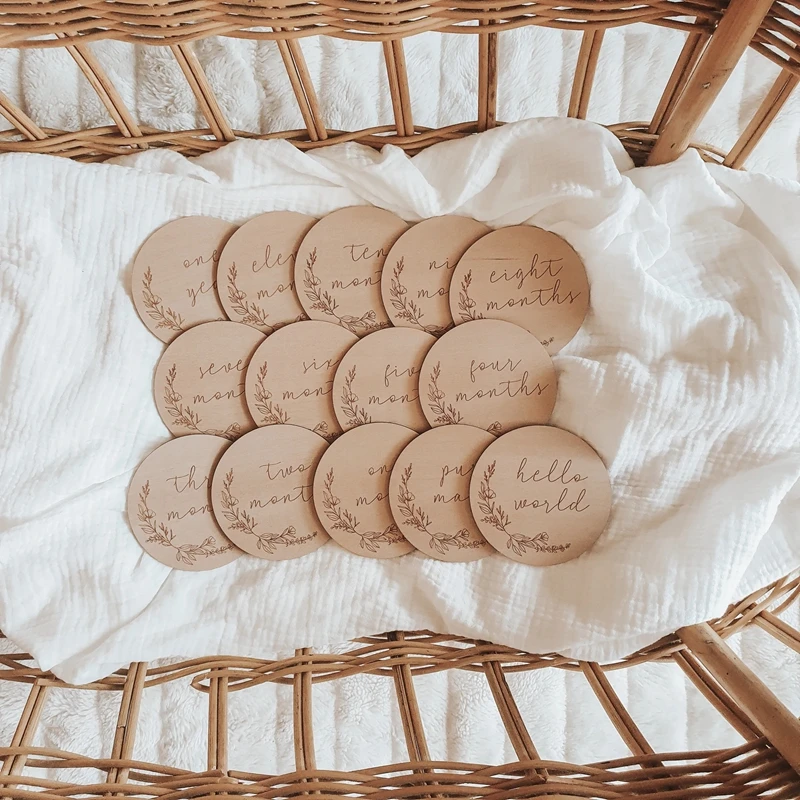 one
ye
ele
mon
ten
mont
ni
mo
eight
months
seve
mont
six
mont
fiv
mon
four
months
thr
mon
two
mont
on
mo
pu
ma
hello
world